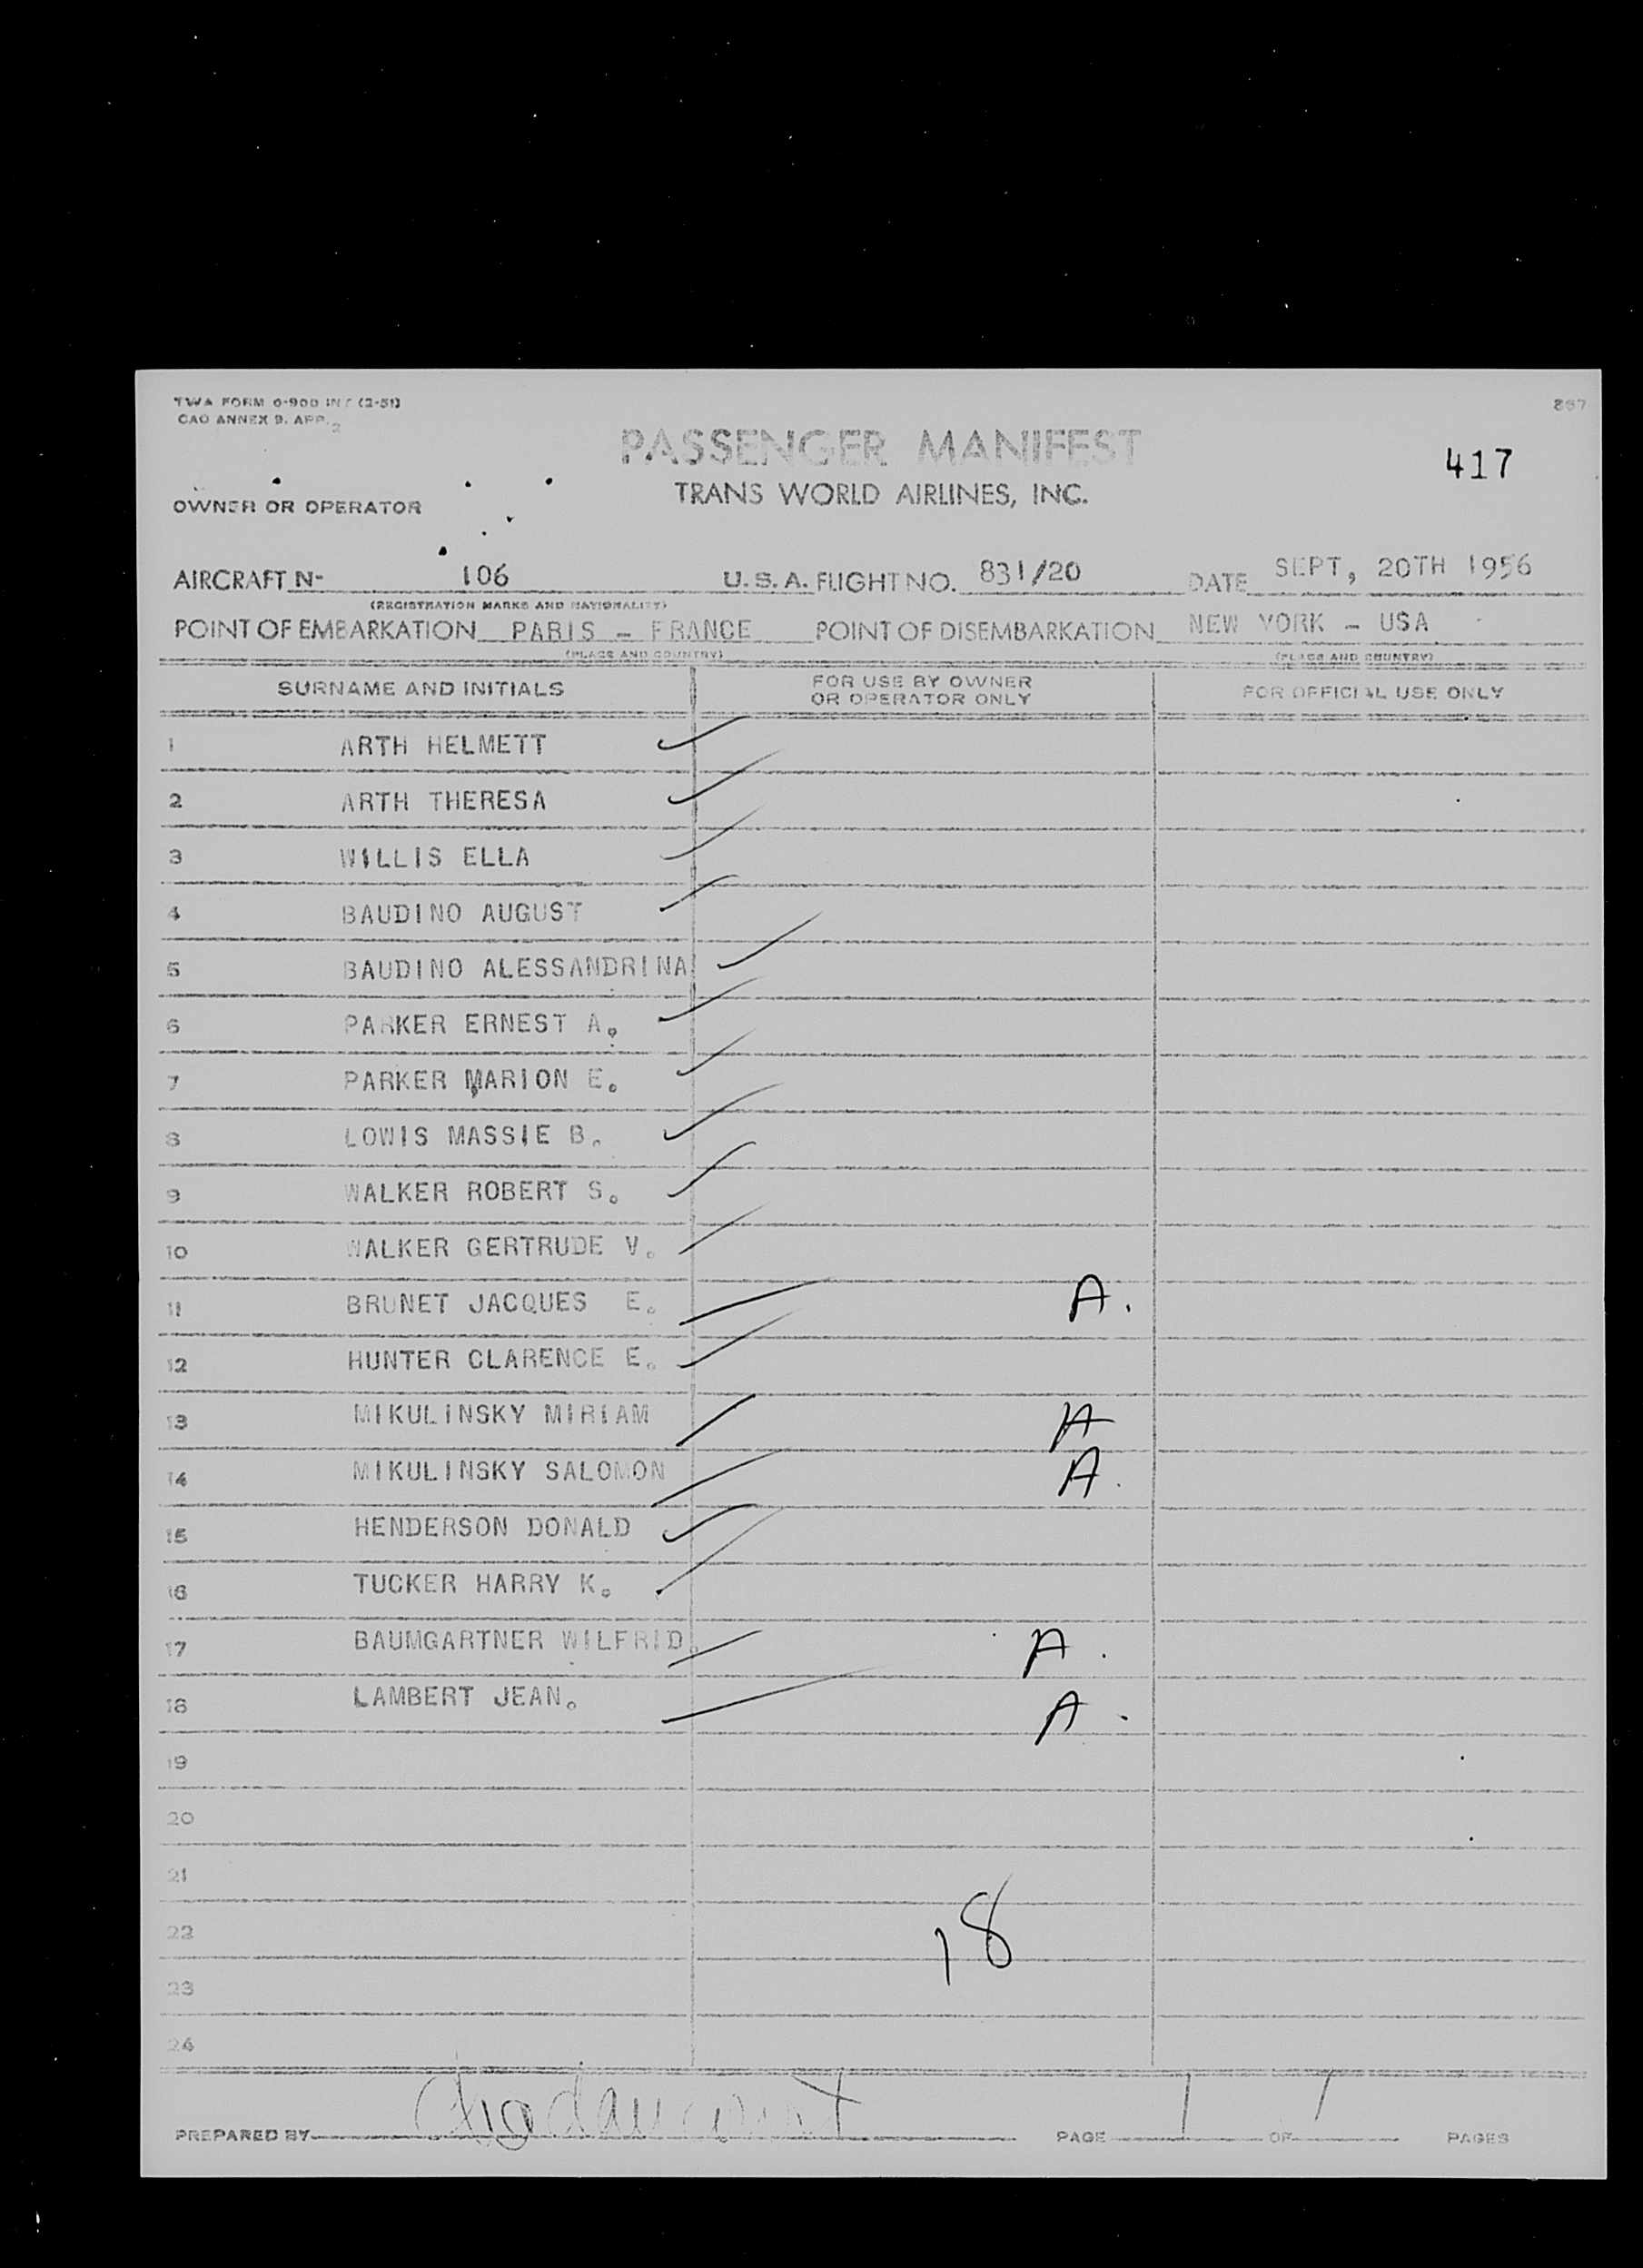 TWA FORM 0-900 INT (2-51)
867
CAO ANNEX 9. APP. 2
PASSENGER MANIFEST
417
TRANS WORLD AIRLINES, INC.
OWNER OR OPERATOR
AIRCRAFT N- 106 U.S.A. FLIGHT NO. 831/20 DATE SEPT, 20TH 1956
(REGISTRATION MARKS AND NATIONALITY)
POINT OF EMBARKATION PARIS - FRANCE POINT OF DISEMBARKATION NEW YORK - USA
(PLACE AND COUNTRY) (PLACE AND COUNTRY)
SURNAME AND INITIALS FOR USE BY OWNER OR OPERATOR ONLY FOR OFFICIAL USE ONLY
1 ARTH HELMETT
2 ARTH THERESA
3 WILLIS ELLA
4 BAUDINO AUGUST
5 BAUDINO ALESSANDRINA
6 PARKER ERNEST A.
7 PARKER MARION E.
8 LOWIS MASSIE B.
9 WALKER ROBERT S.
10 WALKER GERTRUDE V.
11 BRUNET JACQUES E. A.
12 HUNTER CLARENCE E.
13 MIKULINSKY MIRIAM A
14 MIKULINSKY SALOMON A.
15 HENDERSON DONALD
16 TUCKER HARRY K.
17 BAUMGARTNER WILFRID. A.
18 LAMBERT JEAN. A.
19
20
21
22 18
23
24
PREPARED BY PAGE 1 OF 1 PAGES